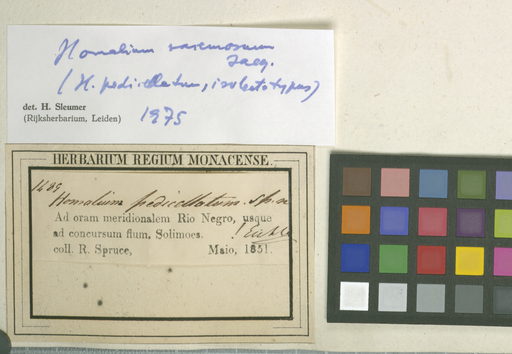 Homalium racemosum
Jacq.
(H. pedicellatum, isolectotypus)
det. H. Sleumer
(Rijksherbarium, Leiden)
1975
HERBARIUM REGIUM MONACENSE.
1489
Homalium pedicellatum. sp. n
Ad oram meridionalem Rio Negro, usque
ad concursum flum. Solimoes.
coll. R. Spruce, Maio, 1851.